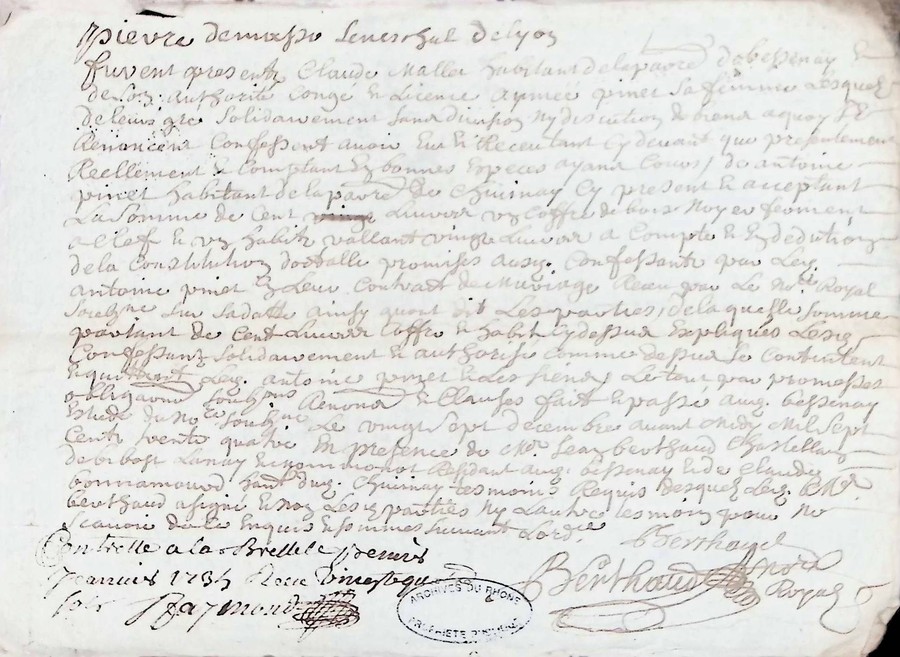 pierre demasso seneschal de lyon
furent presentz Claude Mallet habitant de la parre de bessenay &
de son authorité Congé & Licence aymée pinet sa femme Lesquelz
de leurs gré solidairement sans division ny discution de biens a quoy ilz
Renoncent Confessent avoir Eu & Receu tant cy devant que presentement
Reellement & Comptant En bonnes Especes ayant Cours, de antoine
pinet habitant de la parre de Chivinay Cy present & acceptant
La somme de Cent Livres un Coffre de bois Noyer fermant
a Cleff & un habitz vallant vingt Livres a Compte & En deduction
de la Constitution dotalle promises ausd. Confessantz par Led.
antoine pinet En Leur Contract de Mariage Receu par Le no.re Royal
sur sa datte ainsy qu'ont dit Les parties, de laquelle somme
portant de Cent Livres Coffre & habit Cy dessus Expliqués Lesd.
Confessantz solidairement & authorisé Comme dessus se Contentent
& quittent Led. antoine pinet & Les siens, Le tout par promesses
obligations Renon.ons & Clauses fait & passé aud. bessenay
Estude du No.re soubz.né Le vingt sept decembre avant Midy Mil sept
Centz trente quatre En presence de M.re Jean berthaud Chastellain
de bibost Lanay & Residant aud. bessenay & de Claude
bonnamour hant dud. Chivinay tesmoins Requis desquelz Led. M.re
berthaud a signé & non Lesd. parties ny L'autre tesmoin pour ne
scavoir de ce Enquis & sommés suivant L'ord.ce
Berthaud
Controllé a la Bresle le
Janvier 1735 Receu
sols Raymond
Berthaud Nore Royal
ARCHIVES DU RHONE